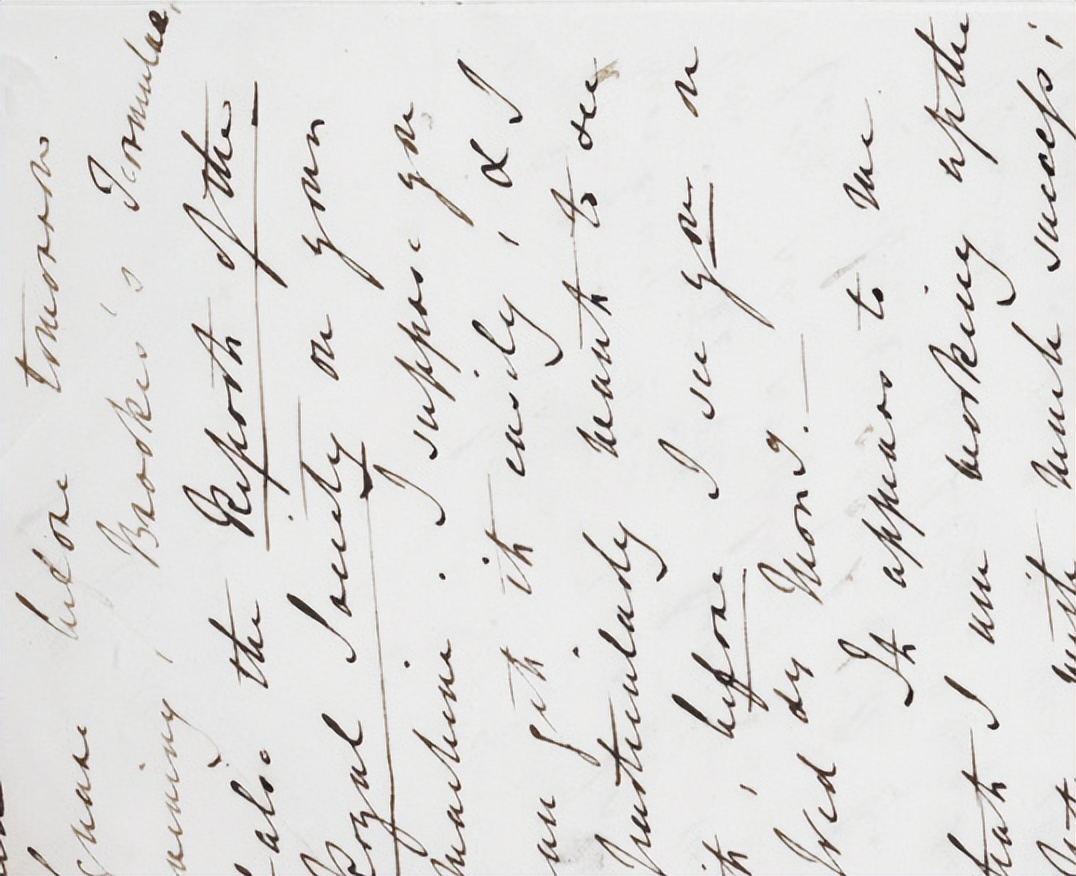 Square before tomorrow
evening, Brooke's Formulae
& also the Report of the
Royal Society on your
machine. I suppose you
can get it easily, & I
particularly want to see
it, before I see you on
Wed^dy Morn^g.—
It appears to me
that I am working up the
Notes with much success;